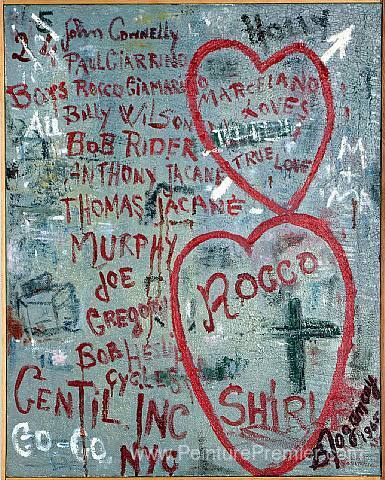 HOLLY
John Connelly
PAUL GIARRINO
BOYS ROCCO GIAMARINO
Billy WILSON
BOB RIDER
ANTHONY IACANE
THOMAS IACANE
MURPHY
JOE
GREGORY
BOB
CYCLES
GENTIL INC
GO-GO
NYC
MARCELANO
LOVES
TRUE LOVE
ROCCO
SHIRL
1965
www.PeinturePremier.com